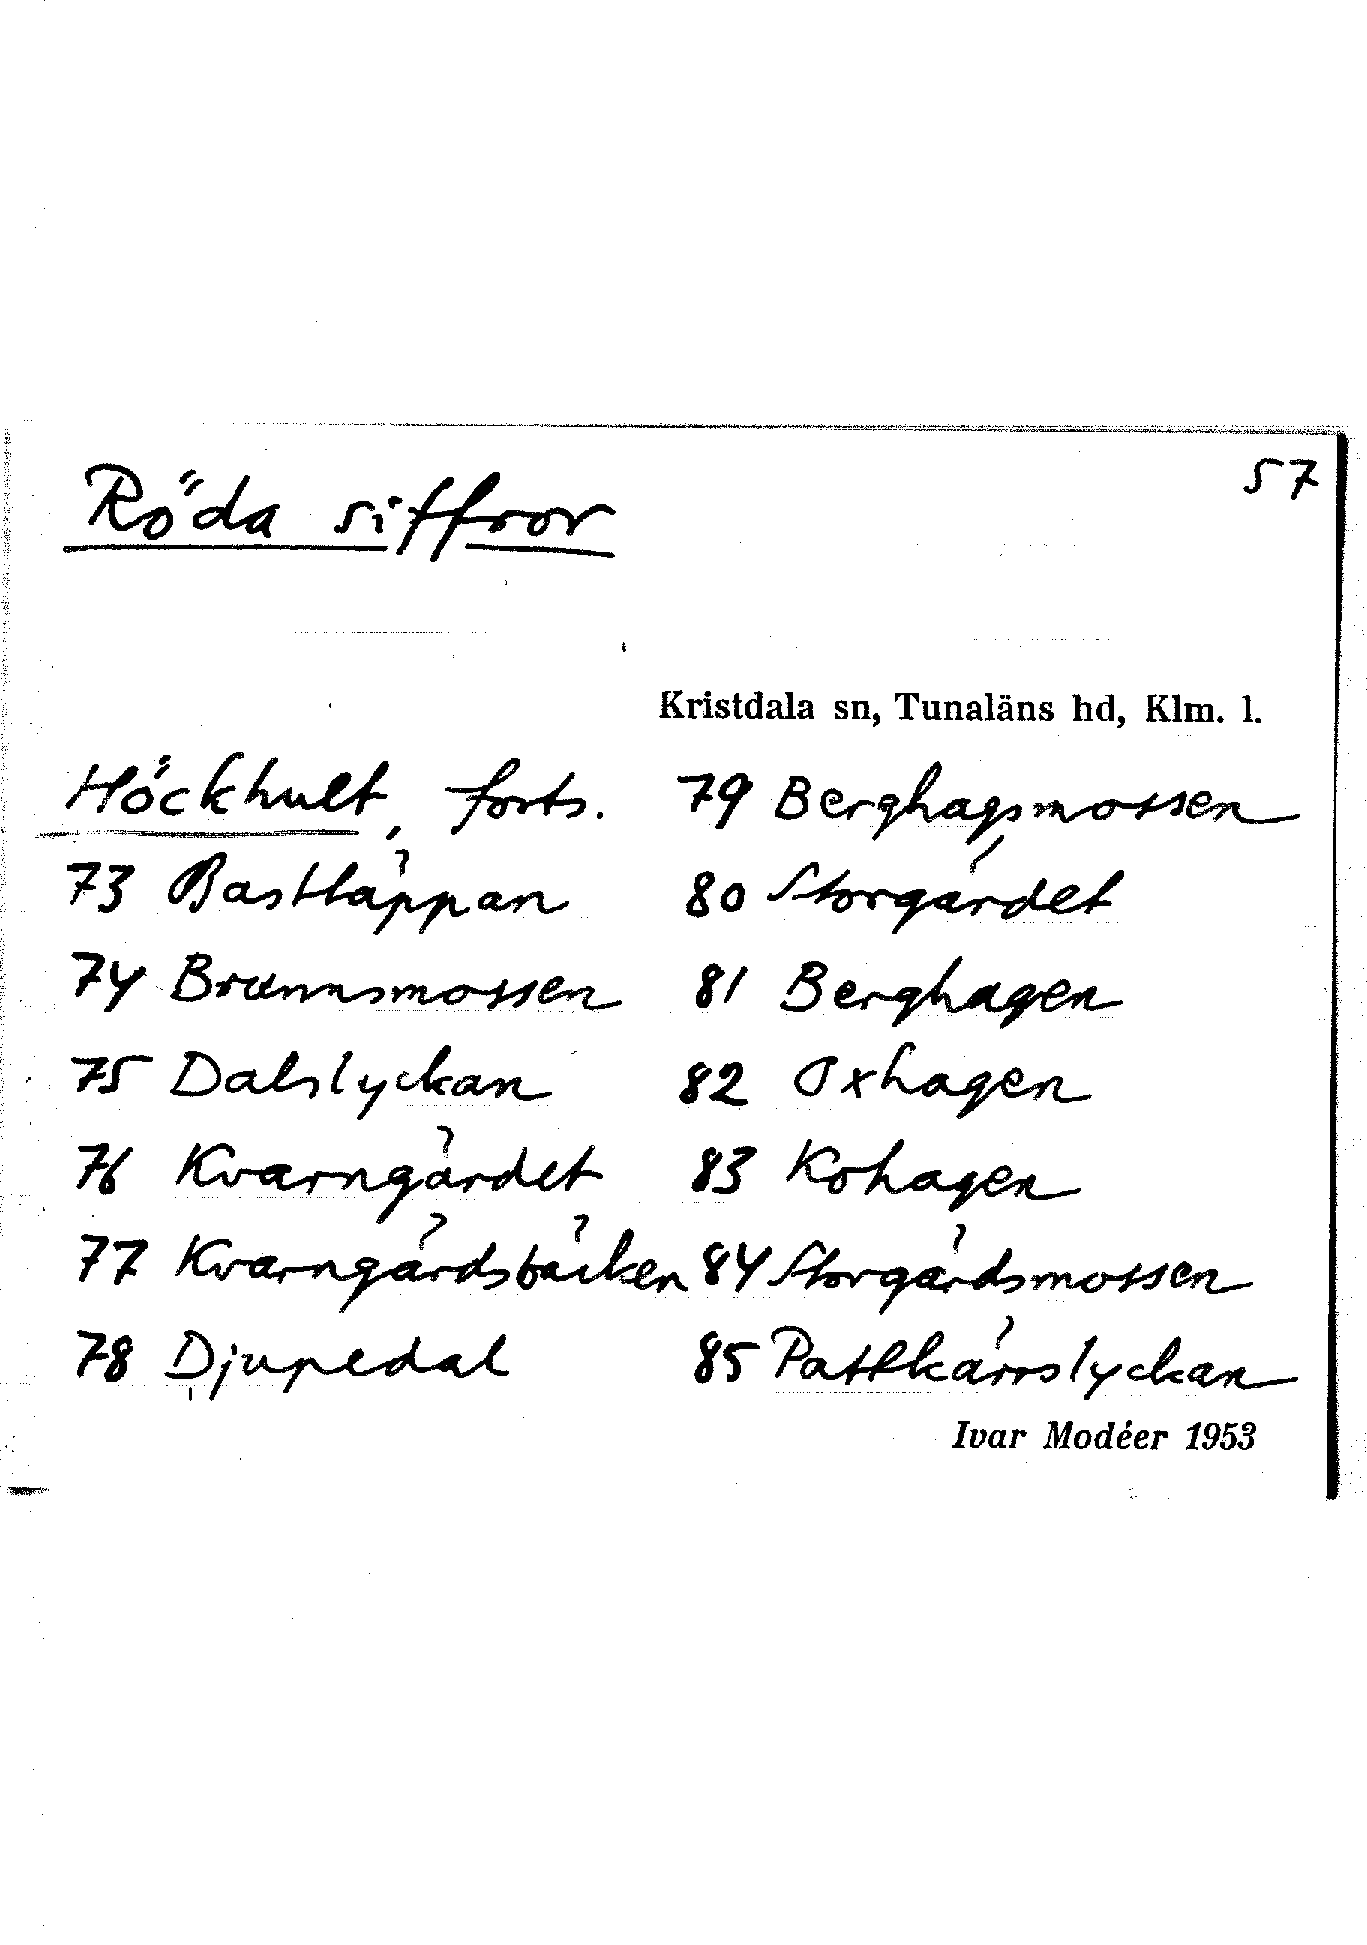 57
Röda siffror
Kristdala sn, Tunaläns hd, Klm. l.
Höckhult, forts.
73 Bastläppan
74 Brunnsmossen
75 Dalslyckan
76 Kvarngärdet
77 Kvarngärdsbäcken
78 Djupedal
79 Berghagsmossen
80 Storgärdet
81 Berghagen
82 Oxhagen
83 Kohagen
84 Storgärdsmossen
85 Pattkärrslyckan
Ivar Modéer 1953